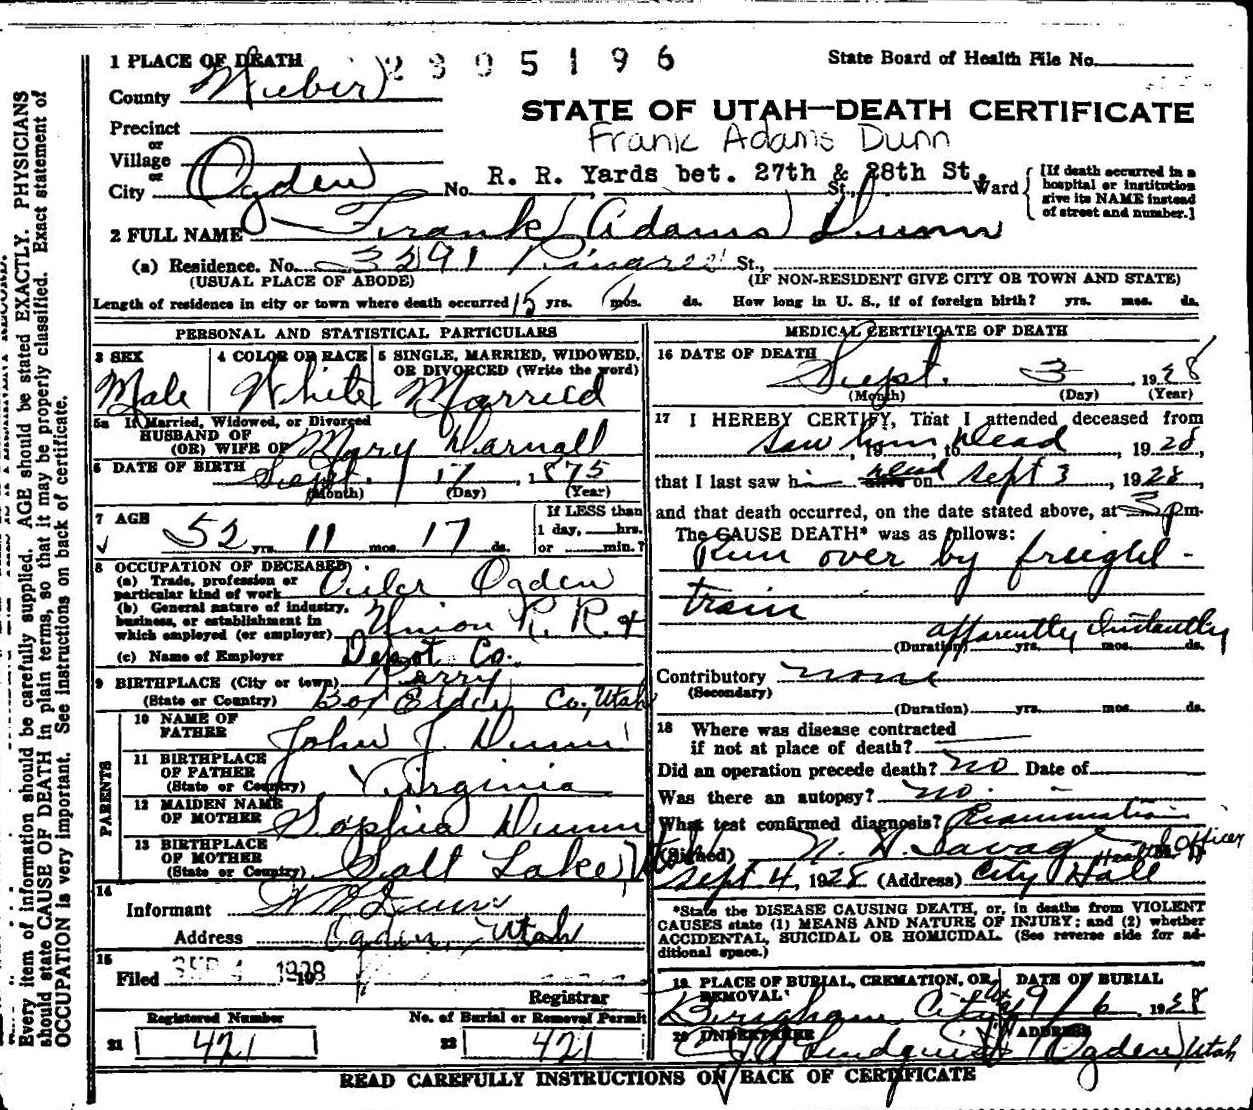 Every item of information should be carefully supplied. AGE should be stated EXACTLY. PHYSICIANS
should state CAUSE OF DEATH in plain terms, so that it may be properly classified. Exact statement of
OCCUPATION is very important. See instructions on back of certificate.
1 PLACE OF DEATH
2805196
State Board of Health File No.
County Weber
STATE OF UTAH—DEATH CERTIFICATE
Precinct
or
Frank Adams Dunn
Village
or
City Ogden No. R. R. Yards bet. 27th & 28th St. St., Ward
[If death occurred in a
hospital or institution
give its NAME instead
of street and number.]
2 FULL NAME Frank Adams Dunn
(a) Residence. No. 3291 Pingree St.,
(USUAL PLACE OF ABODE) (IF NON-RESIDENT GIVE CITY OR TOWN AND STATE)
Length of residence in city or town where death occurred 15 yrs. mos. ds. How long in U. S., if of foreign birth? yrs. mos. ds.
PERSONAL AND STATISTICAL PARTICULARS
3 SEX Male
4 COLOR OR RACE White
5 SINGLE, MARRIED, WIDOWED,
OR DIVORCED (Write the word)
Married
5a If Married, Widowed, or Divorced
HUSBAND OF
(OR) WIFE OF Mary Darnall
6 DATE OF BIRTH Sept. 17, 1875
(Month) (Day) (Year)
7 AGE 52 yrs. 11 mos. 17 ds.
If LESS than
1 day, hrs.
or min.?
8 OCCUPATION OF DECEASED
(a) Trade, profession or
particular kind of work Oiler Ogden
(b) General nature of industry,
business, or establishment in
which employed (or employer) Union R. R. &
(c) Name of Employer Depot Co.
9 BIRTHPLACE (City or town) Perry
(State or Country) Box Elder Co, Utah
PARENTS
10 NAME OF
FATHER John J. Dunn
11 BIRTHPLACE
OF FATHER
(State or Country) Virginia
12 MAIDEN NAME
OF MOTHER Sophia Dunn
13 BIRTHPLACE
OF MOTHER
(State or Country) Salt Lake,
14
Informant Dunn
Address Ogden, Utah
15
Filed SEP 4 1928 19
Registrar
Registered Number No. of Burial or Removal Permit
21 421 22 421
MEDICAL CERTIFICATE OF DEATH
16 DATE OF DEATH
Sept. 3, 1928
(Month) (Day) (Year)
17 I HEREBY CERTIFY, That I attended deceased from
saw him dead, 19, to, 1928,
that I last saw h dead alive on Sept 3, 1928,
and that death occurred, on the date stated above, at 3 pm.
The CAUSE DEATH* was as follows:
Run over by freight-
train
apparently Instantly
(Duration) yrs. mos. ds.
Contributory none
(Secondary)
(Duration) yrs. mos. ds.
18 Where was disease contracted
if not at place of death?
Did an operation precede death? no Date of
Was there an autopsy? no.
What test confirmed diagnosis? Examination
(Signed) N. H. Savage Health Officer
Sept 4, 1928 (Address) City Hall
*State the DISEASE CAUSING DEATH, or, in deaths from VIOLENT
CAUSES state (1) MEANS AND NATURE OF INJURY; and (2) whether
ACCIDENTAL, SUICIDAL OR HOMICIDAL. (See reverse side for ad-
ditional space.)
19 PLACE OF BURIAL, CREMATION, OR
REMOVAL
Brigham City
DATE OF BURIAL
9/6 1928
20 UNDERTAKER
Lindquist
ADDRESS
Ogden, Utah
READ CAREFULLY INSTRUCTIONS ON BACK OF CERTIFICATE